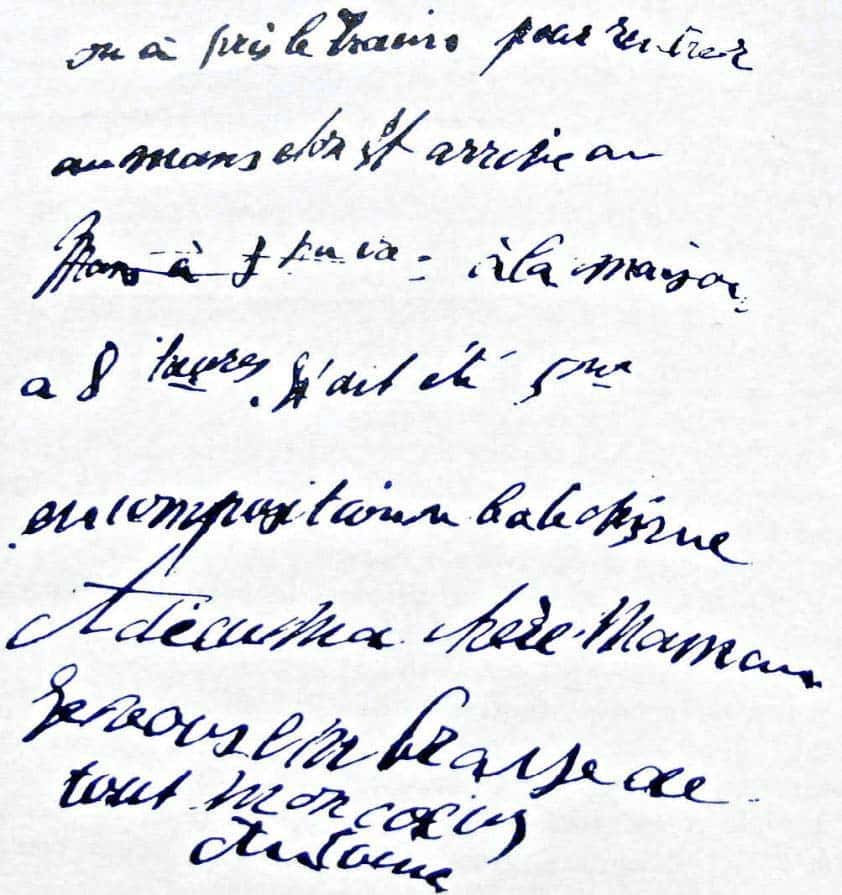 on à pris le train pour rentrer
au mans et on est arrivé au
Mans à : à la maison
a 8 heures. J'ait été 5me
en composition
Adieu Ma chère Maman
Je vous embrasse de
tout mon coeur
Antoine